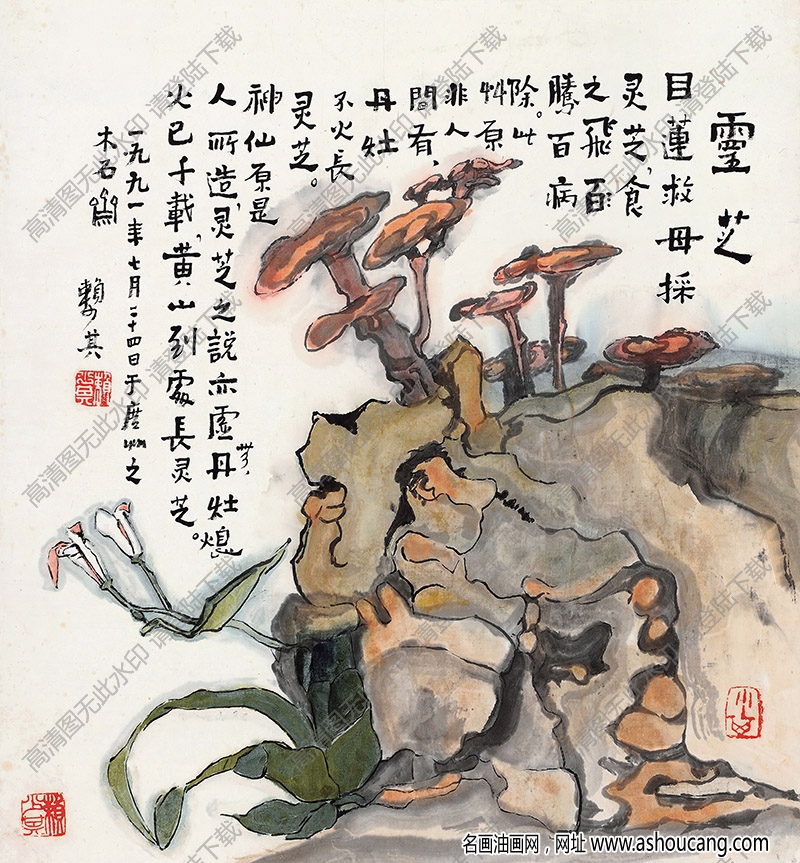 靈芝
目蓮救母採
灵芝,食
之飛
騰百病
除。此
艸原
非人
間有,
丹灶
不火長
灵芝。
神仙原是
人所造,灵芝之説亦虛無、丹灶熄
火已千載,黄山到處長灵芝。
一九九一年七月二十四日于廣州之
木石齋 賴少其
高清图无此水印 请登陆下载
名画油画网，网址 www.ashoucang.com